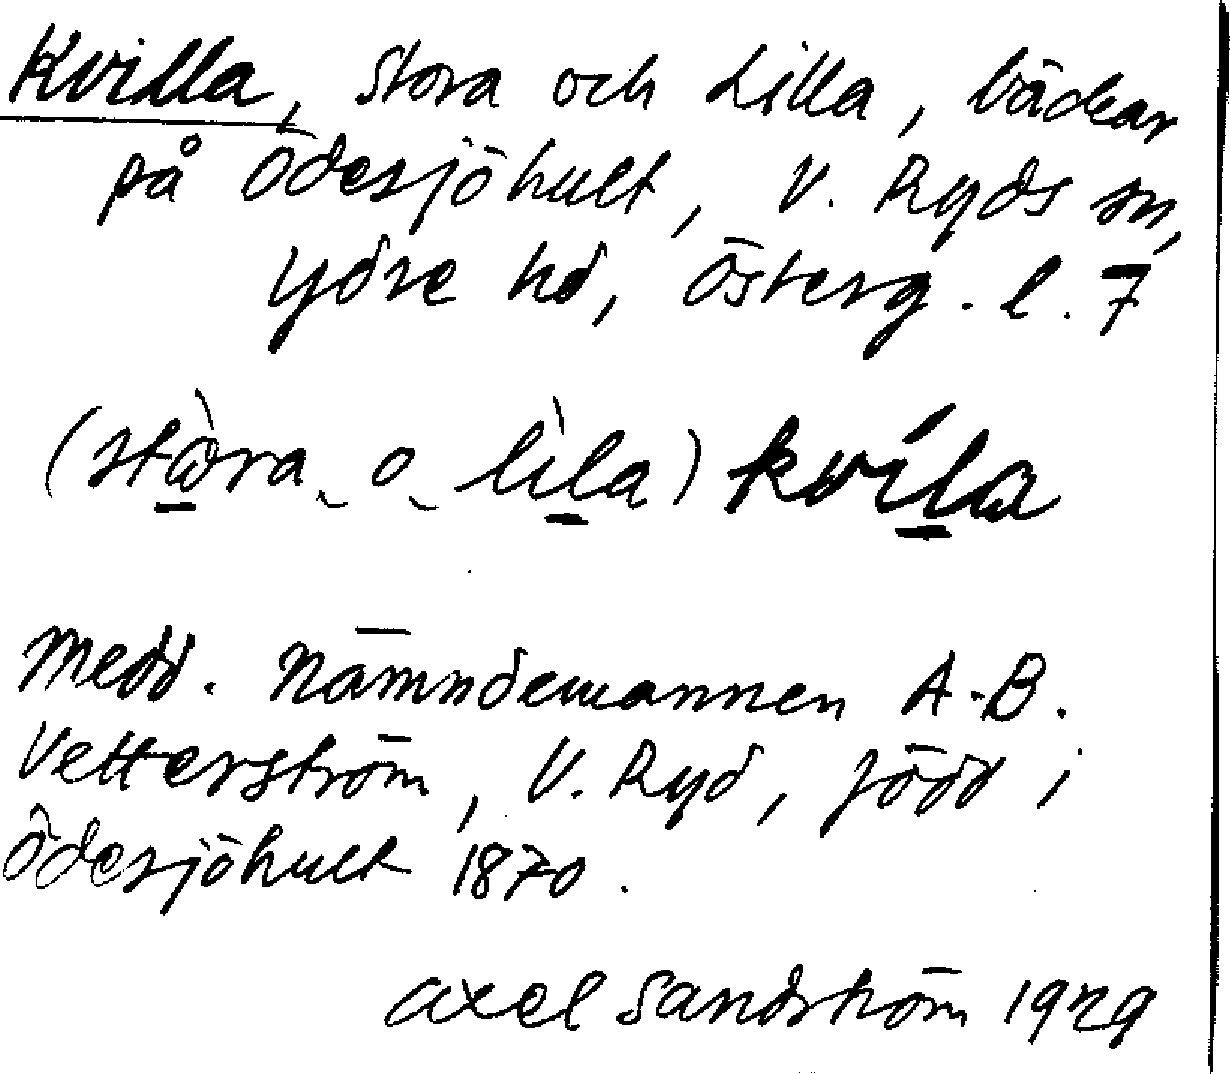 Kvilla, Stora och Lilla, bäckar
på Ödesjöhult, V. Ryds sn,
Ydre hd, Österg. l. 7
(stòra o lìla) kvíla
Medd. Nämndemannen A.B.
Vetterström, V. Ryd, född i
Ödesjöhult 1870.
Axel Sandström 1929